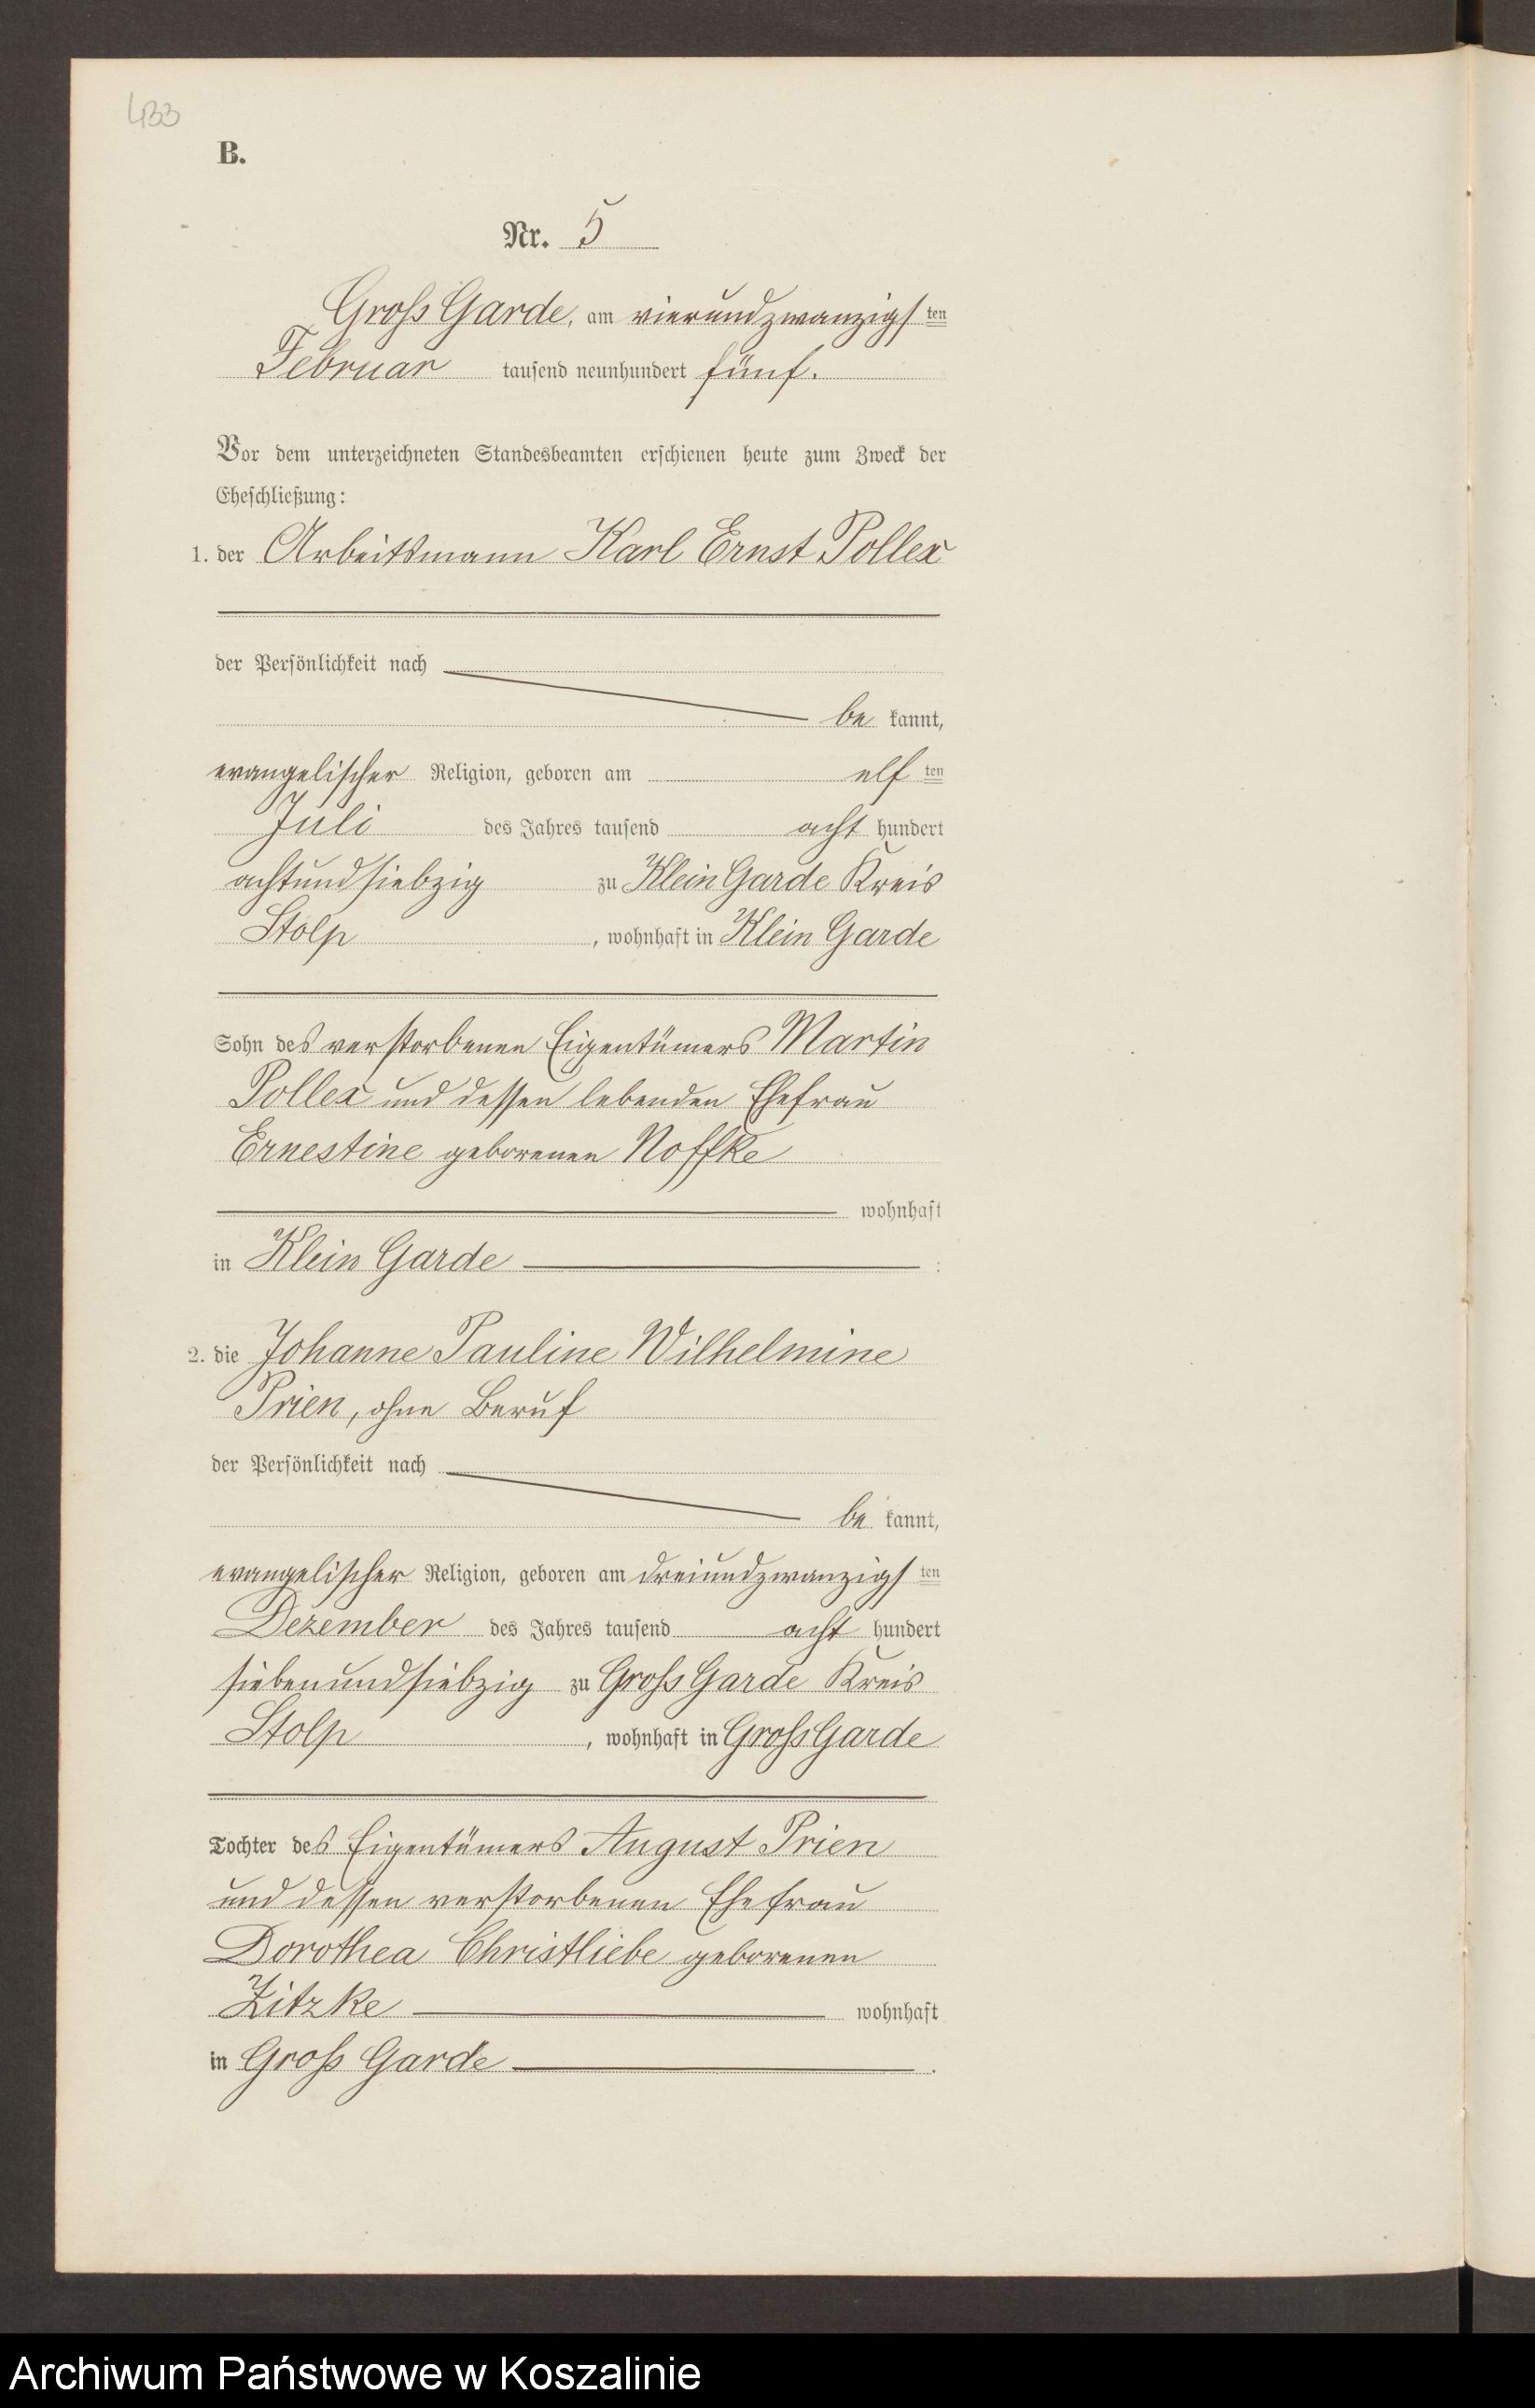 433
B.
Nr. 5
Groß Garde, am vierundzwanzigsten
Februar tausend neunhundert fünf.
Vor dem unterzeichneten Standesbeamten erschienen heute zum Zweck der
Eheschließung:
1. der Arbeitsmann Karl Ernst Pollex
der Persönlichkeit nach
be kannt,
evangelischer Religion, geboren am elf ten
Juli des Jahres tausend acht hundert
achtundsiebzig zu Klein Garde Kreis
Stolp, wohnhaft in Klein Garde
Sohn des verstorbenen Eigentümers Martin
Pollex und dessen lebenden Ehefrau
Ernestine geborenen Noffke
wohnhaft
in Klein Garde :
2. die Johanne Pauline Wilhelmine
Prien, ohne Beruf
der Persönlichkeit nach
be kannt,
evangelischer Religion, geboren am dreiundzwanzigsten
Dezember des Jahres tausend acht hundert
siebenundsiebzig zu Groß Garde Kreis
Stolp, wohnhaft in Groß Garde
Tochter des Eigentümers August Prien
und dessen verstorbenen Ehefrau
Dorothea Christliebe geborenen
Zitzke wohnhaft
in Groß Garde .
Archiwum Państwowe w Koszalinie